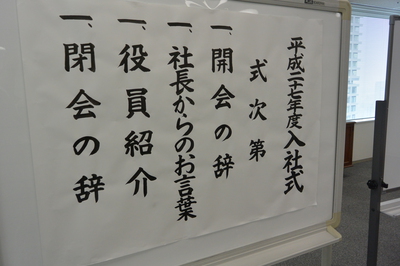 平成二十七年度入社式
式次第
一、開会の辞
一、社長からのお言葉
一、役員紹介
一、閉会の辞